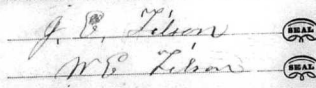 J. E. Tilson SEAL
W E Tilson SEAL